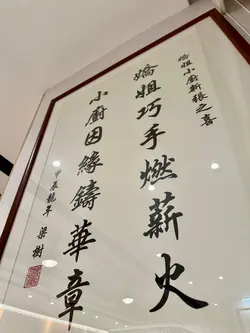 嬌姐小廚新張之喜
嬌姐巧手燃薪火
小廚因緣鑄華章
甲辰龍年 梁樹